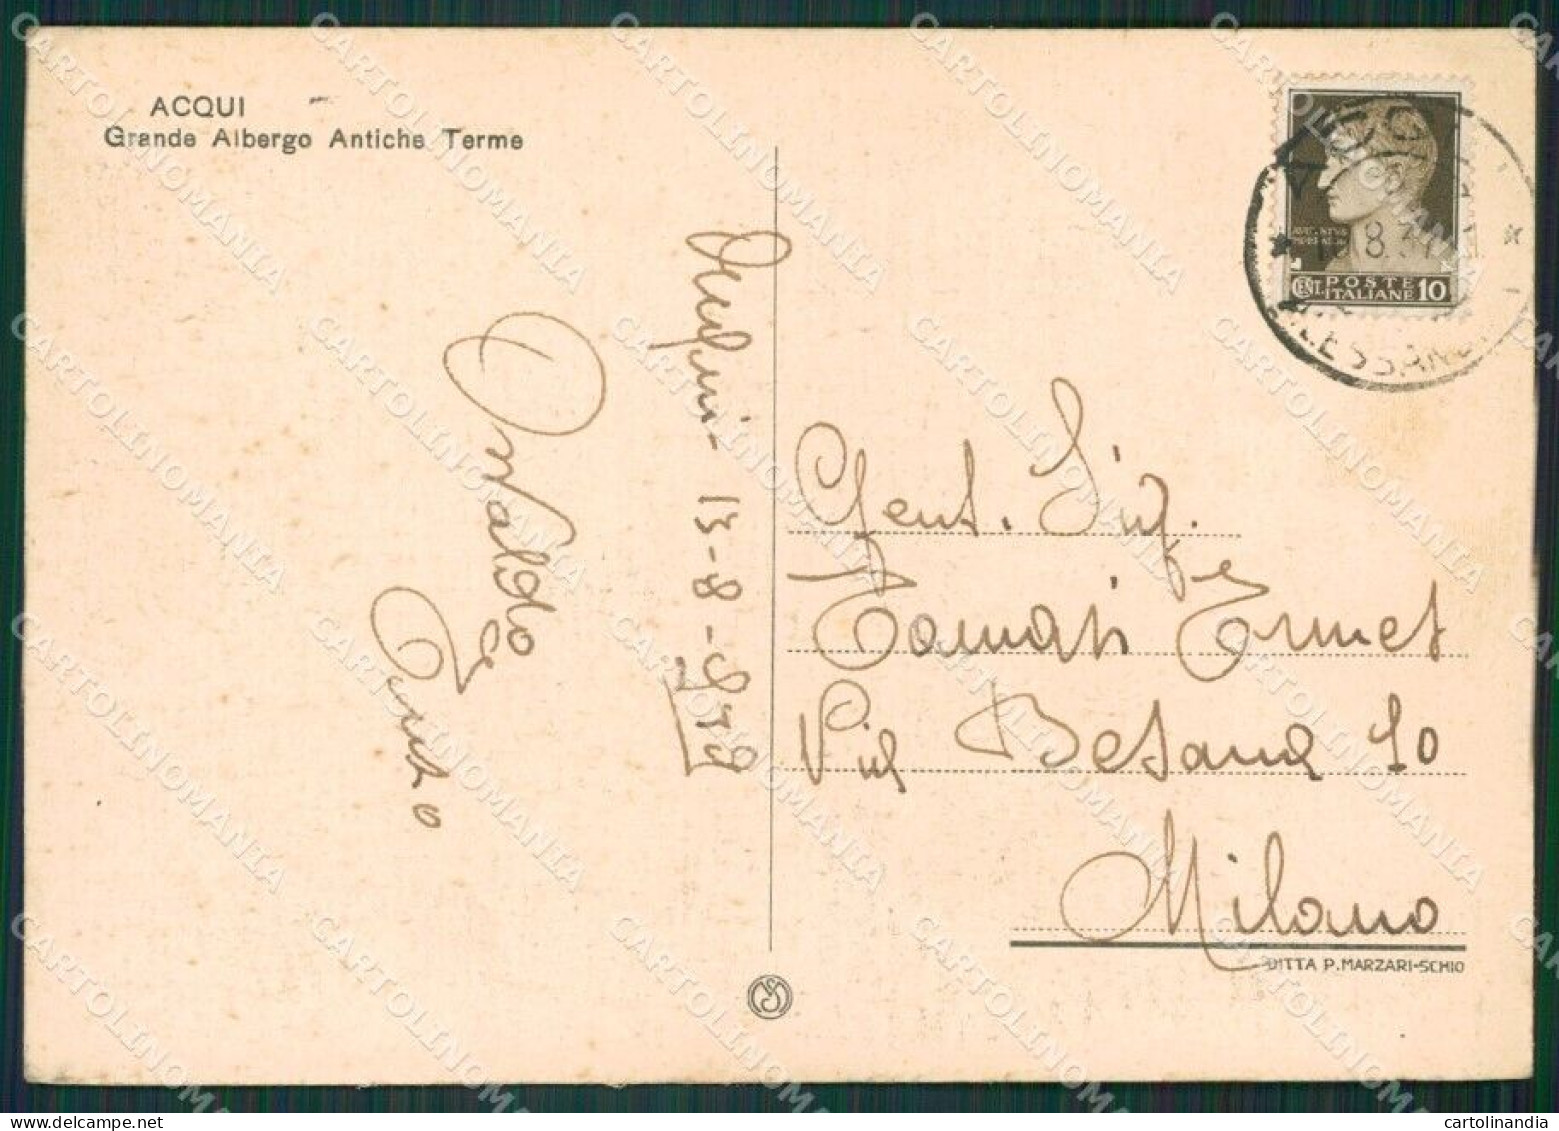 ACQUI
Grande Albergo Antiche Terme
13-8-
Osvaldo
e
POSTE
CENT. ITALIANE 10
8.
Gent. Sig.
Tomati Ermet
Via Besana 10
Milano
DITTA P. MARZARI-SCHIO
CARTOLINOMANIA
cartolinandia